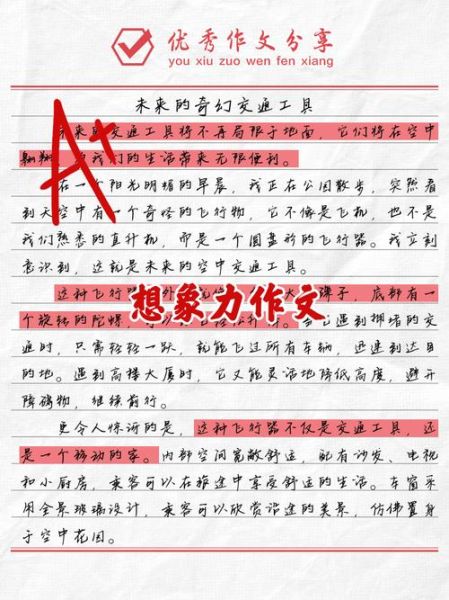 优秀作文分享
you xiu zuo wen fen xiang
未来的奇幻交通工具
A+
未来的交通工具将不再局限于地面，它们将在空中
翱翔，为我们的生活带来无限便利。
在一个阳光明媚的早晨，我正在公园散步，突然看
到天空中有一个奇怪的飞行物，它不像是飞机，也不是
我们熟悉的直升机，而是一个圆盘形的飞行器。我立刻
意识到，这就是未来的空中交通工具。
这种飞行器外 大 珠子，底部有一
个旋转的陀螺， 遇到拥堵的交
想象力作文
通时，只需轻轻一跃，就能飞过所有车辆，迅速到达目
的地。遇到高楼大厦时，它又能灵活地降低高度，避开
障碍物，继续前行。
更令人惊讶的是，这种飞行器不仅是交通工具，还
是一个移动的家。内部空间宽敞舒适，配有沙发、电视
和小厨房，乘客可以在旅途中享受舒适的生活。车窗采
用全景玻璃设计，乘客可以欣赏沿途的美景，仿佛置身
于空中花园。